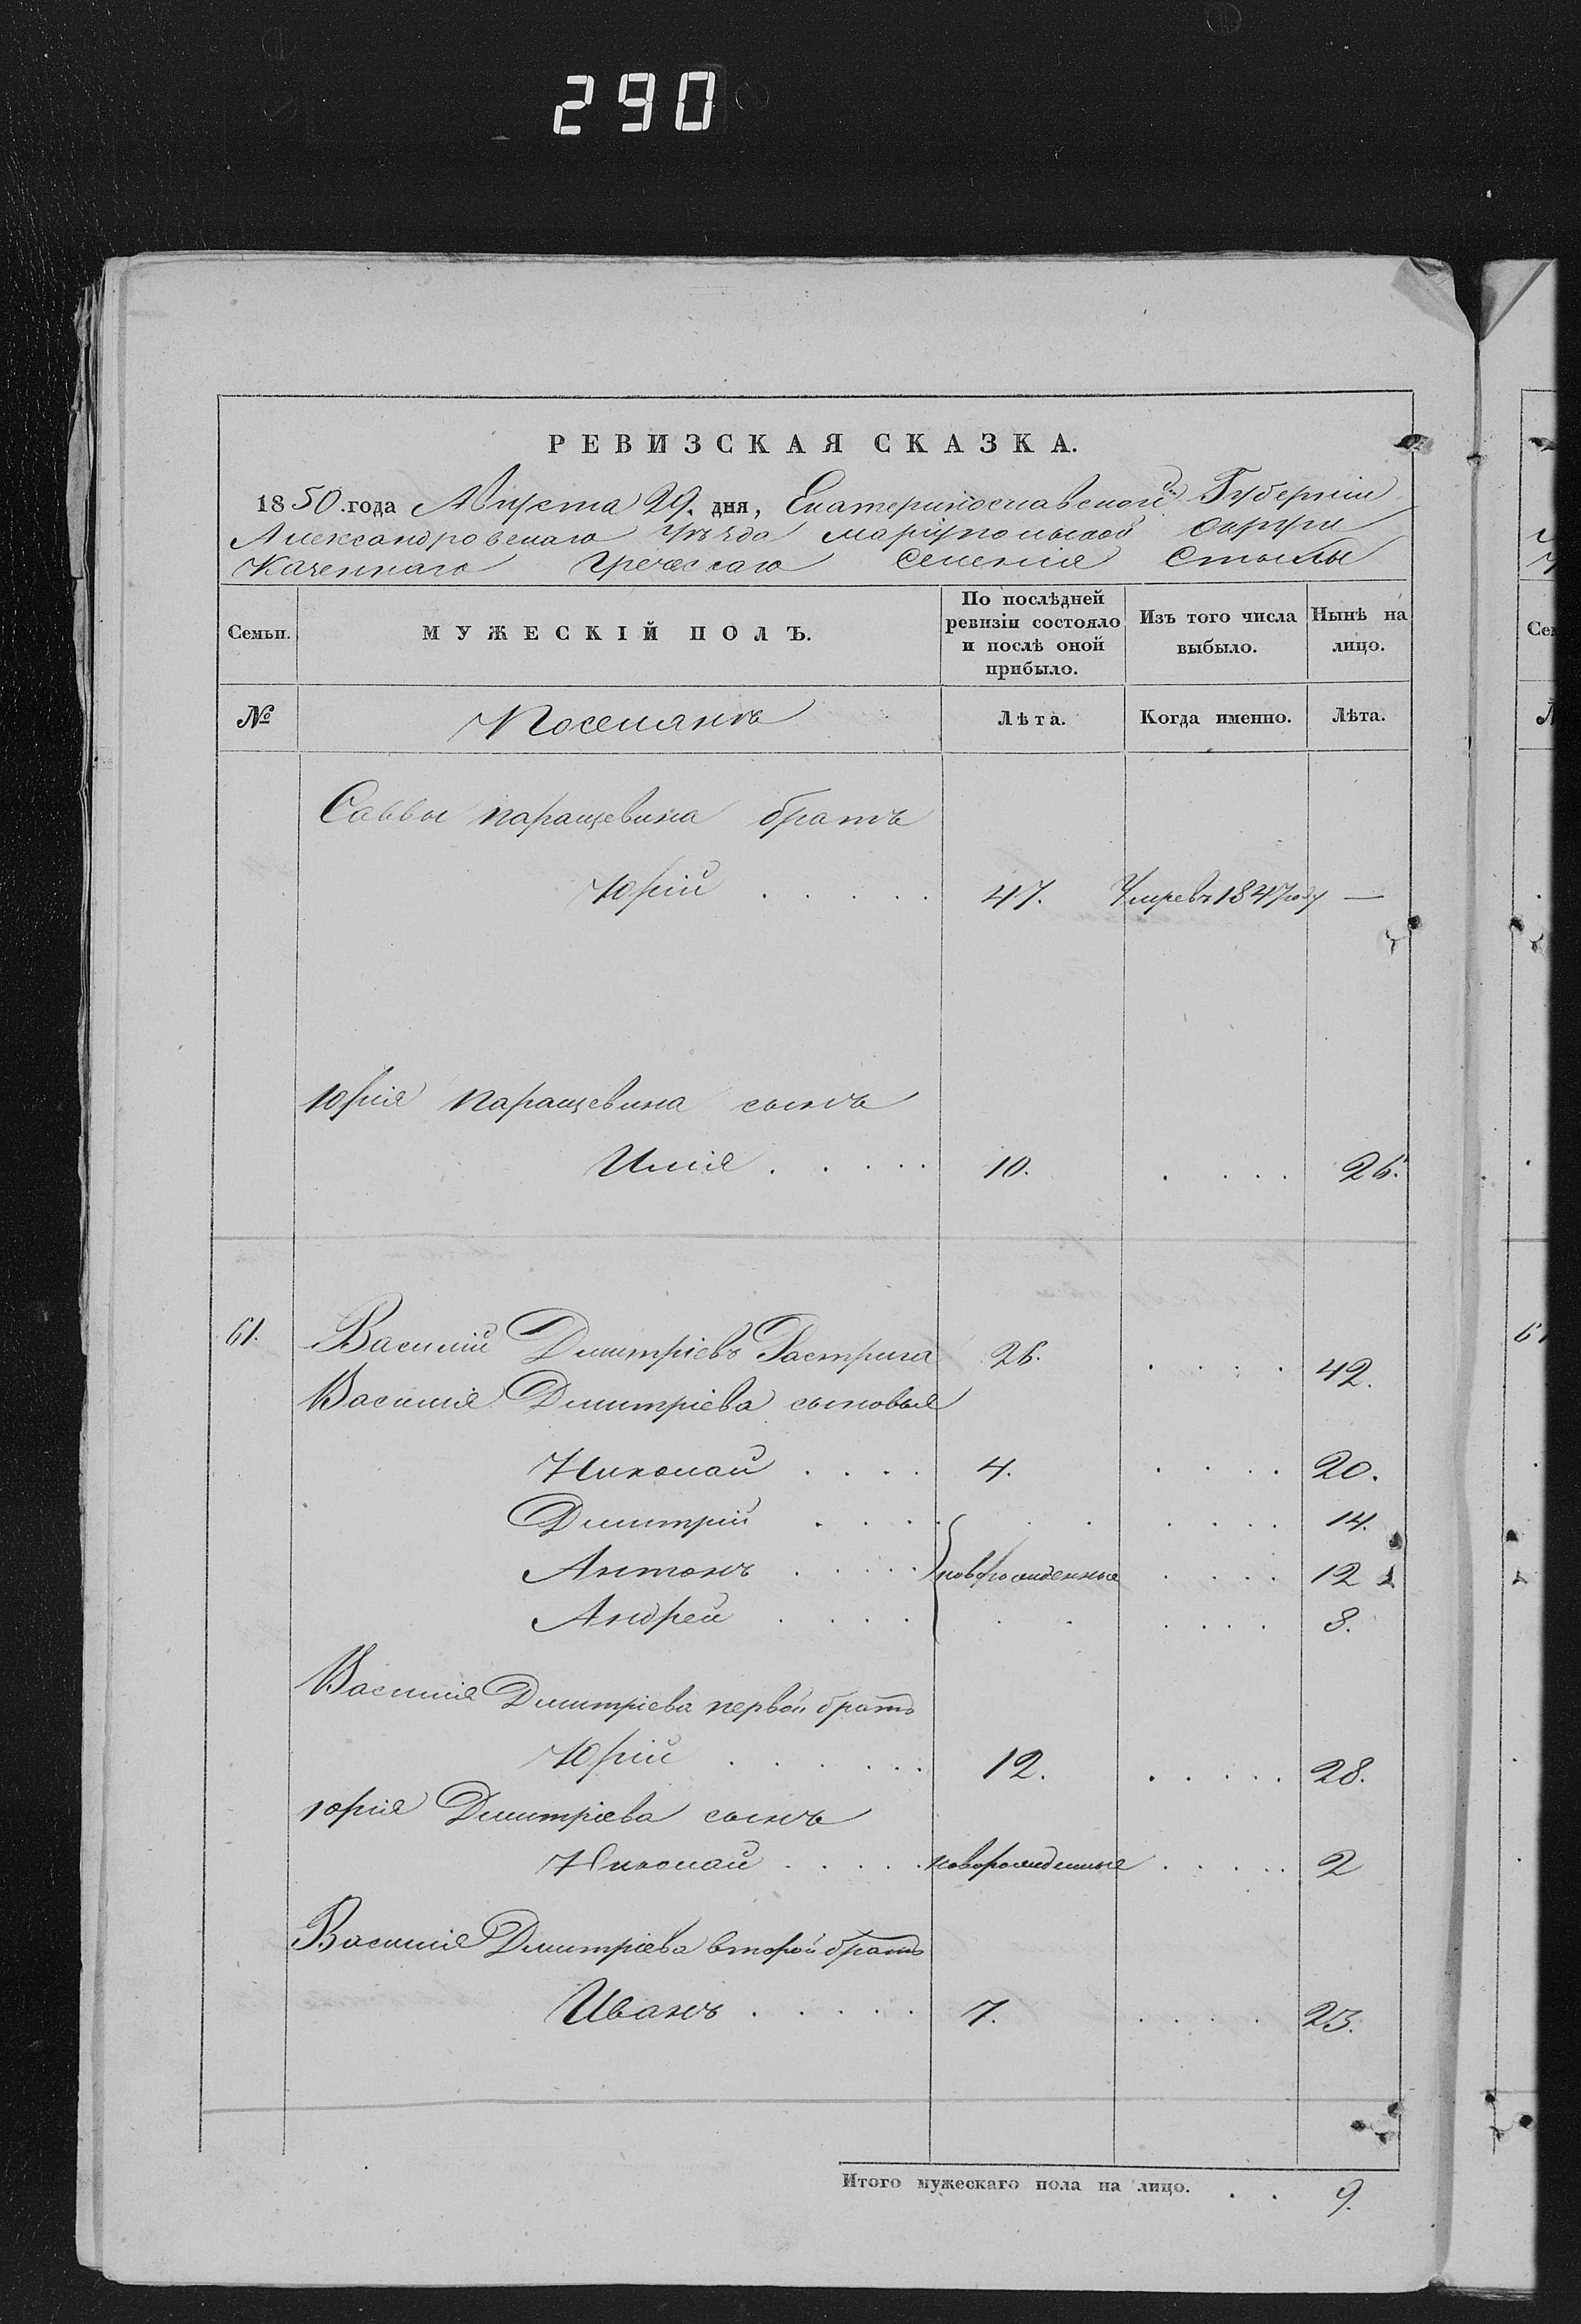 290
РЕВИЗСКАЯ СКАЗКА.
1850 года Августа 29. дня, Екатеринославской Губерніи
Александровскаго Уѣзда Маріупольской округи
Казеннаго Греческаго Селенія Стылы
Семьи. МУЖЕСКІЙ ПОЛЪ. По послѣдней ревизіи состояло и послѣ оной прибыло. Изъ того числа выбыло. Нынѣ на лицо.
№ Поселянъ Лѣта. Когда именно. Лѣта.
Саввы Паращевина братъ
Юрій . . . . . 47. Умре въ 1847 году —
Юрія Паращевина сынъ
Илія . . . . . 10. . . . . 26.
61. Василий Дмитріевъ Растрига 26. . . . . 42.
Василія Дмитріева сыновья
Николай . . . . 4. . . . . 20.
Дмитрій . . . . . . . . . . 14.
Антонъ . . . . . новорожденные . . . . 12
Андрей . . . . . . . . . . 8.
Василія Дмитріева первой братъ
Юрій . . . . . . 12. . . . . . 28.
Юрія Дмитріева сынъ
Николай . . . . . новорожденные . . . . . 2
Василія Дмитріева второй братъ
Иванъ . . . . . 7. . . . . 23.
Итого мужескаго пола на лицо. . . 9.